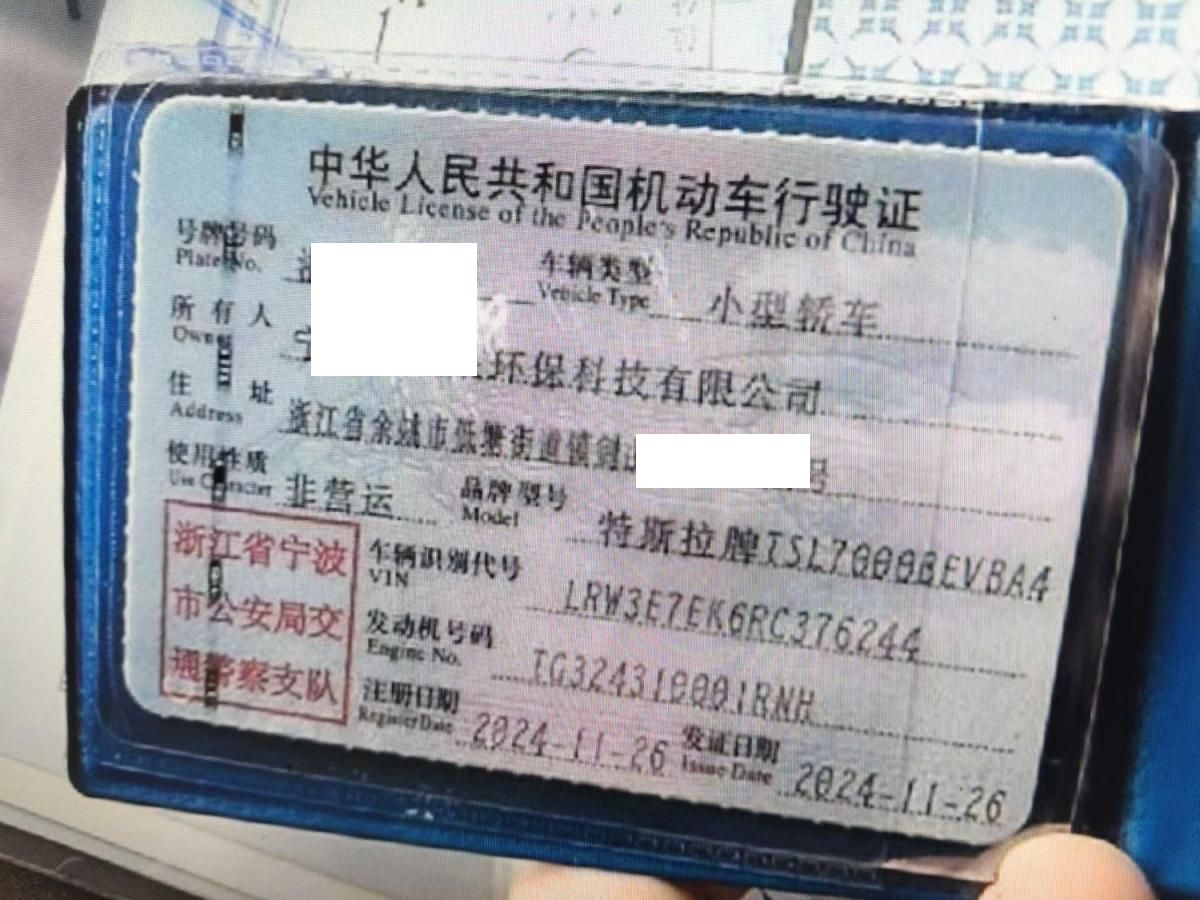 中华人民共和国机动车行驶证
Vehicle License of the People's Republic of China
号牌号码
Plate No.
车辆类型 小型轿车
Vehicle Type
所有人 环保科技有限公司
Owner
住址 浙江省余姚市低塘街道镇剑 号
Address
使用性质 非营运
Use Character
品牌型号 特斯拉牌TSL7000BEVBA4
Model
浙江省宁波
市公安局交
通警察支队
车辆识别代号 LRW3E7EK6RC376244
VIN
发动机号码 TG324310001RNH
Engine No.
注册日期 2024-11-26
Register Date
发证日期 2024-11-26
Issue Date